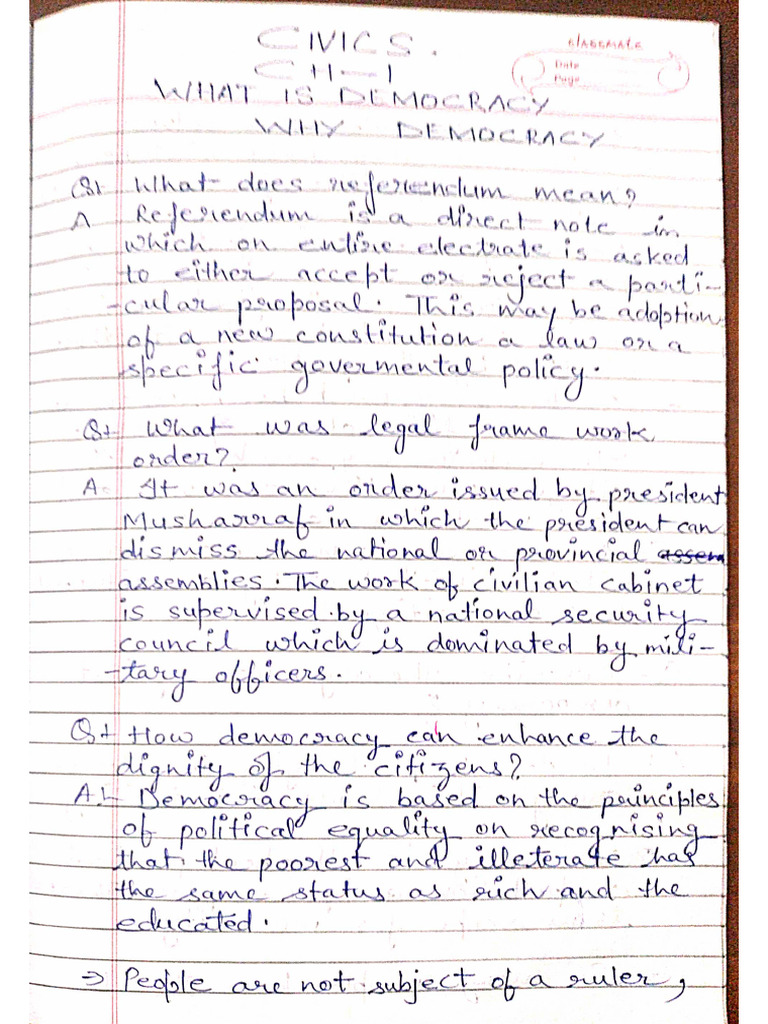 CIVICS.
classmate
Date
Page
CH-1
WHAT IS DEMOCRACY
WHY DEMOCRACY
Q1 What does referendum mean?
A Referendum is a direct note in
which on entire electrate is asked
to either accept or reject a parti-
-cular proposal. This may be adoption
of a new constitution a law or a
specific govermental policy.
Q+ What was legal frame work
order?
A- It was an order issued by president
Musharraf in which the president can
dismiss the national or provincial assem
assemblies. The work of civilian cabinet
is supervised by a national security
council which is dominated by mili-
-tary officers.
Q+ How democracy can enhance the
dignity of the citizens?
A1- Democracy is based on the principles
of political equality on recognising
that the poorest and illeterate has
the same status as rich and the
educated.
⇒ People are not subject of a ruler,